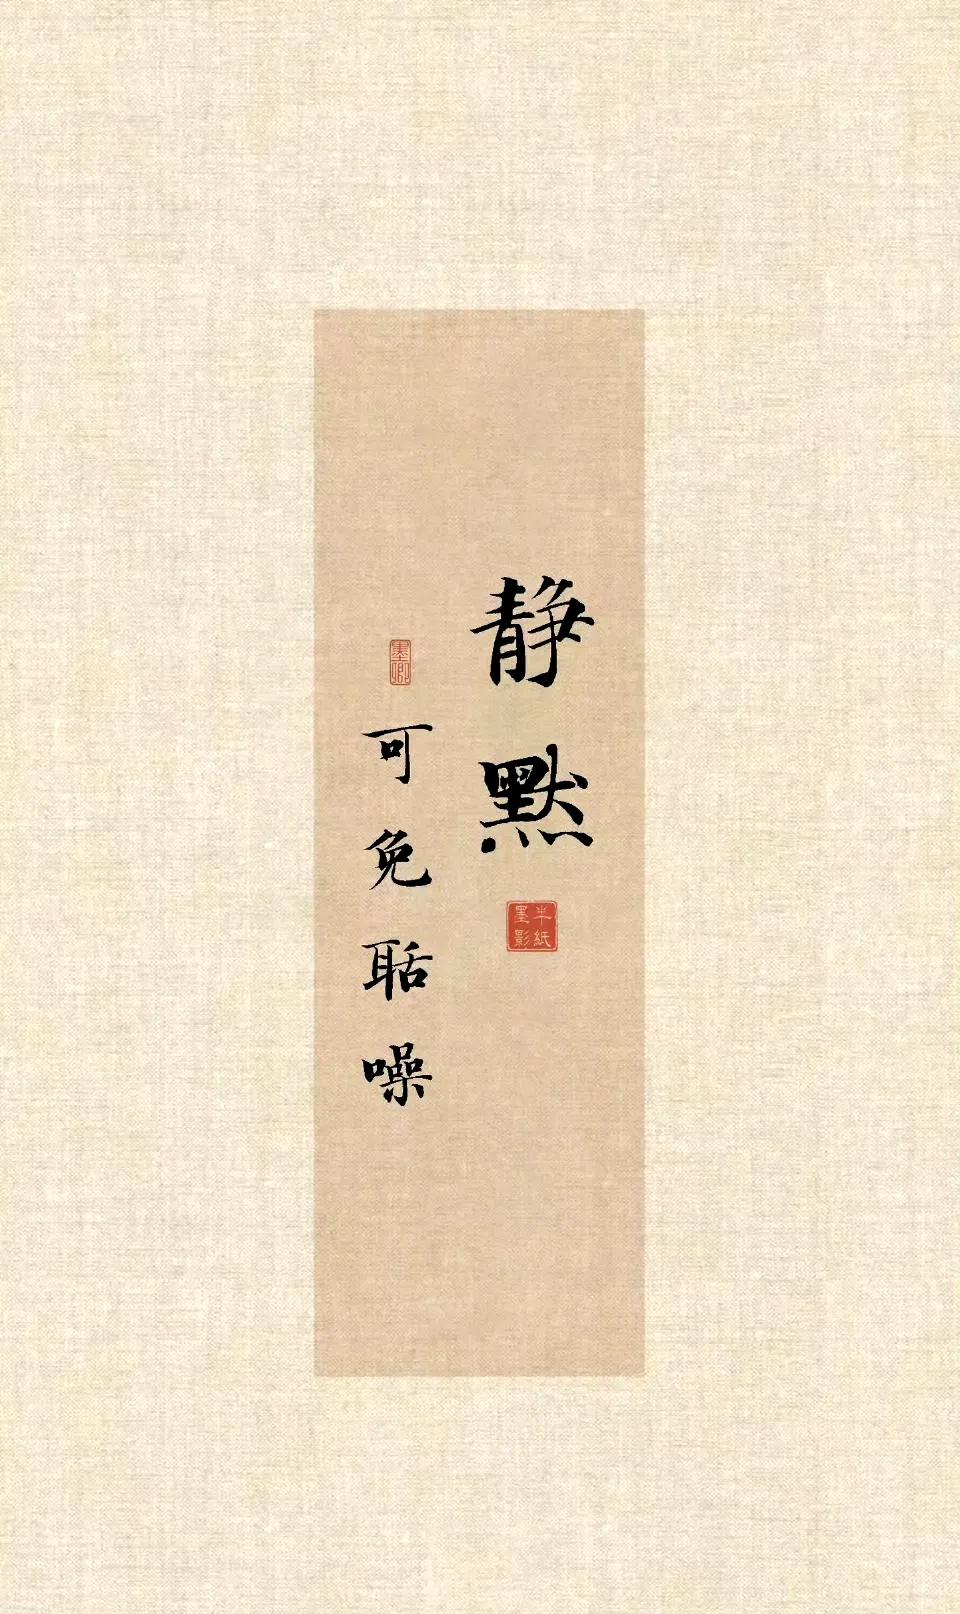 静默
半紙
墨影
墨卿
可免聒噪